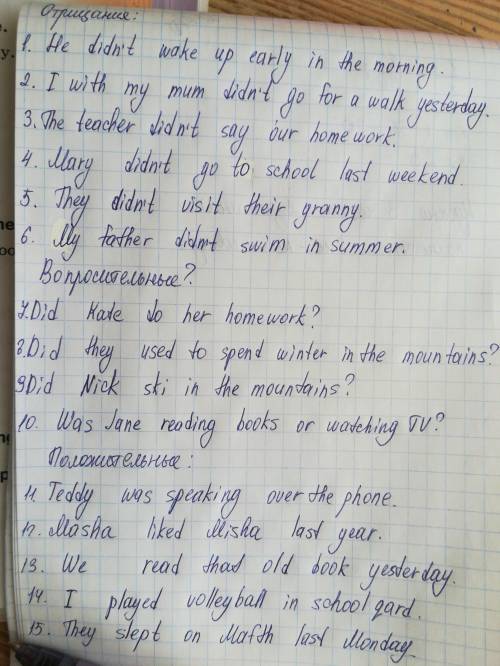 Отрицания:
1. He didn't wake up early in the morning.
2. I with my mum didn't go for a walk yesterday.
3. The teacher didn't say our homework.
4. Mary didn't go to school last weekend.
5. They didn't visit their granny.
6. My father didn't swim in summer.
Вопросительные?
7. Did Kate do her homework?
8. Did they used to spend winter in the mountains?
9 Did Nick ski in the mountains?
10. Was Jane reading books or watching TV?
Положительные:
11. Teddy was speaking over the phone.
12. Masha liked Misha last year.
13. We read that old book yesterday.
14. I played volleyball in school yard.
15. They slept on last Monday